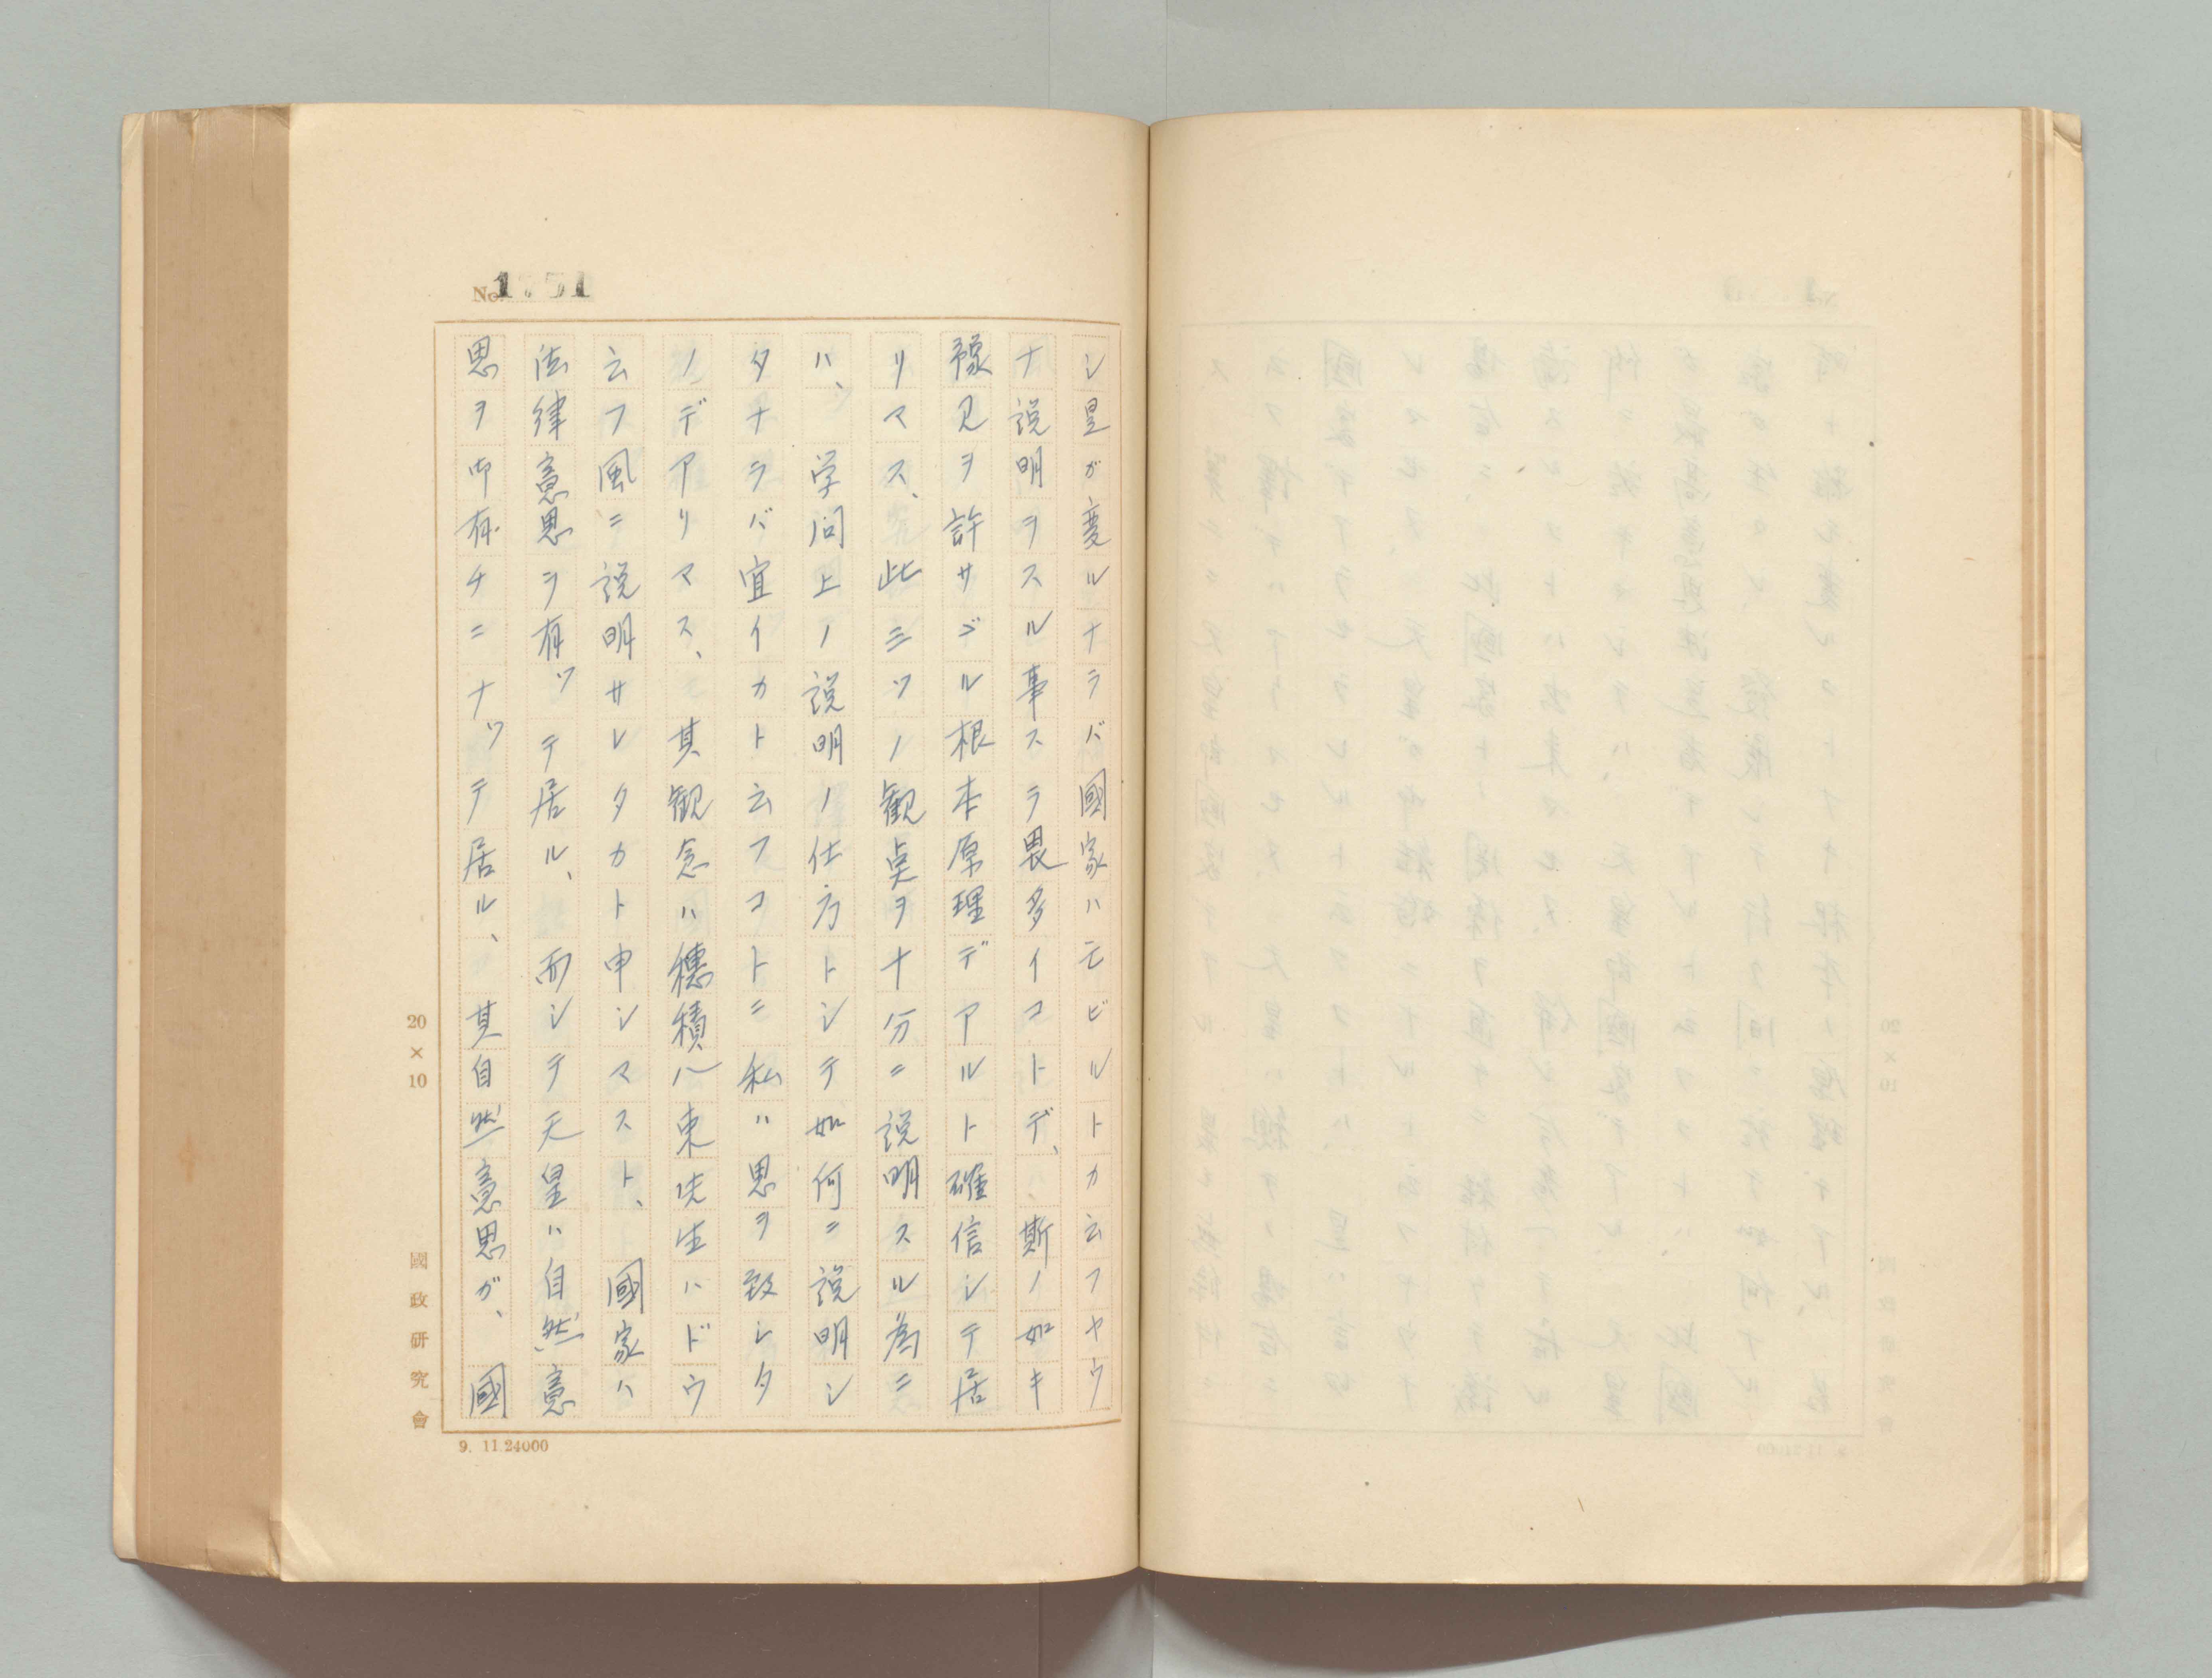 No.
シ皇ガ変ルナラバ國家ハモビルトカ云フヤウ
ナ説明ヲスル事スラ畏多イコトデ、斯ノ如キ
豫見ヲ許サヾル根本原理デアルト確信シテ居
リマス、此三ツノ観点ヲ十分ニ説明スル為ニ
ハ、学問上ノ説明ノ仕方トシテ如何ニ説明シ
タナラバ宜イカト云フコトニ私ハ思ヲ致シタ
ノデアリマス、其観念ハ穂積八束先生ハドウ
云フ風ニ説明サレタカト申シマスト、國家ハ
法律意思ヲ有ツテ居ル、而シテ天皇ハ自然意
思ヲ御有チニナツテ居ル、其自然意思ガ、國
20×10
國政研究會
9. 11.24000